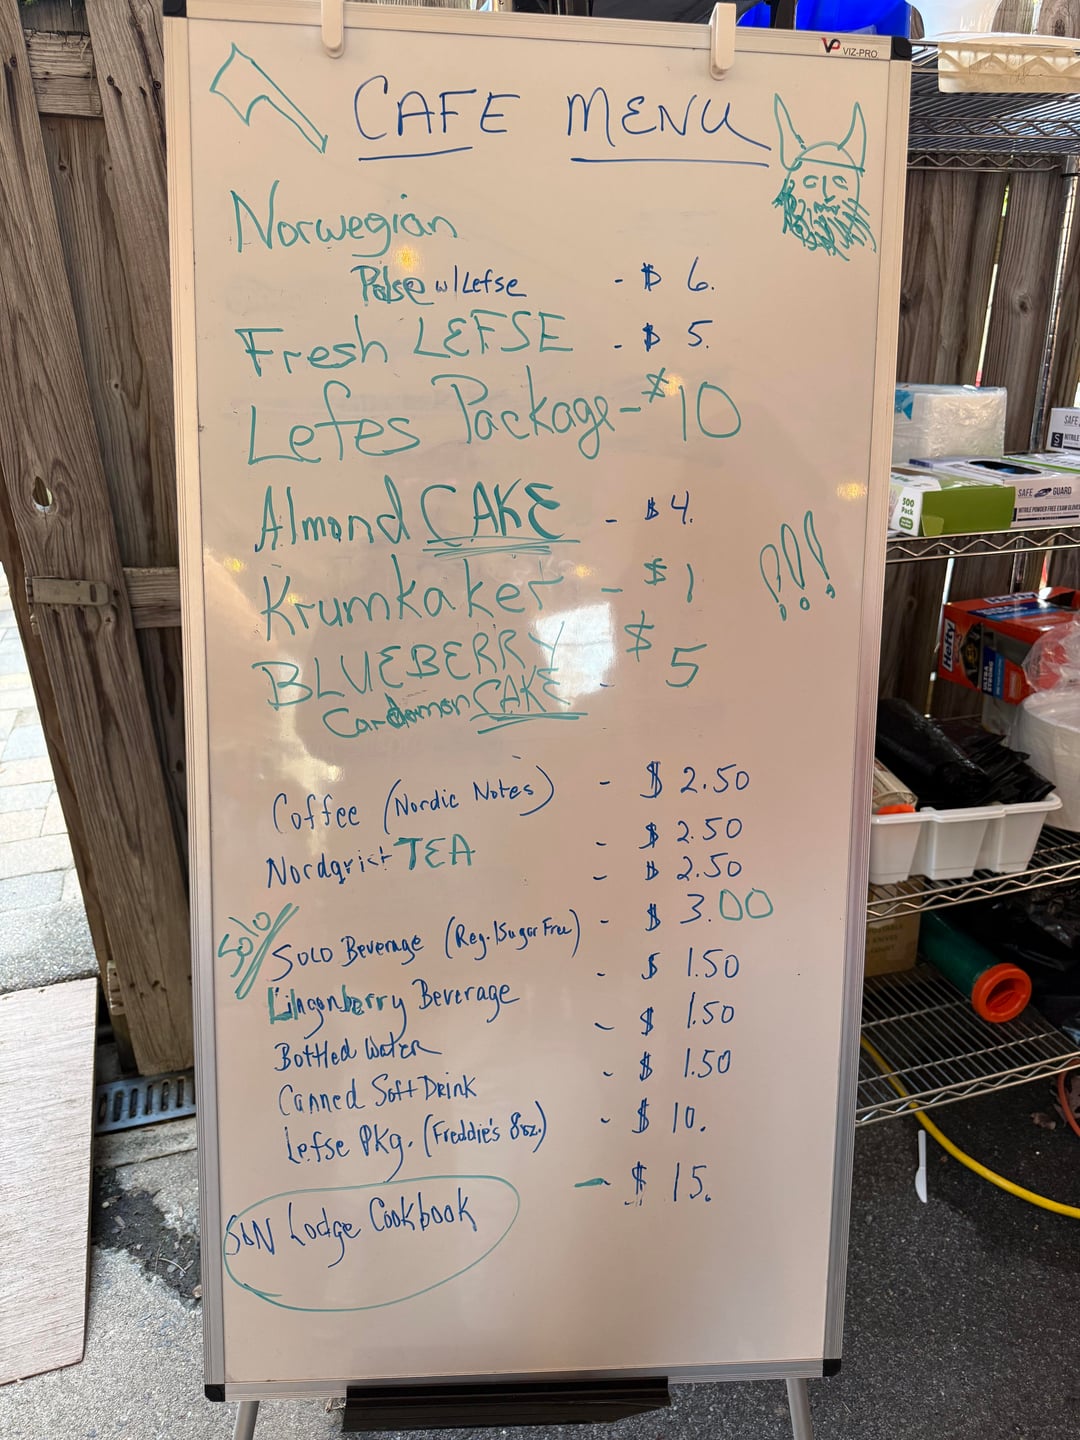 VIZ-PRO
CAFE MENU
Norwegian
Pølse w/Lefse - $ 6.
Fresh LEFSE - $ 5.
Lefes Package - $10
Almond CAKE - $4.
Krumkaker - $ 1
!!!
BLUEBERRY $
Cardamon CAKE - 5
Coffee (Nordic Notes) - $ 2.50
Nordqvist TEA - $ 2.50
- $ 2.50
SOLO Beverage (Reg./Sugar Free) - $ 3.00
Lingonberry Beverage - $ 1.50
Bottled Water - $ 1.50
Canned Soft Drink - $ 1.50
Lefse PKg. (Freddie's 8oz.) - $ 10.
SoN Lodge Cookbook - $ 15.
500 Pack
SAFE GUARD
NITRILE POWDER FREE EXAM GLOVES
SAFE
S NITRILE
Hefty